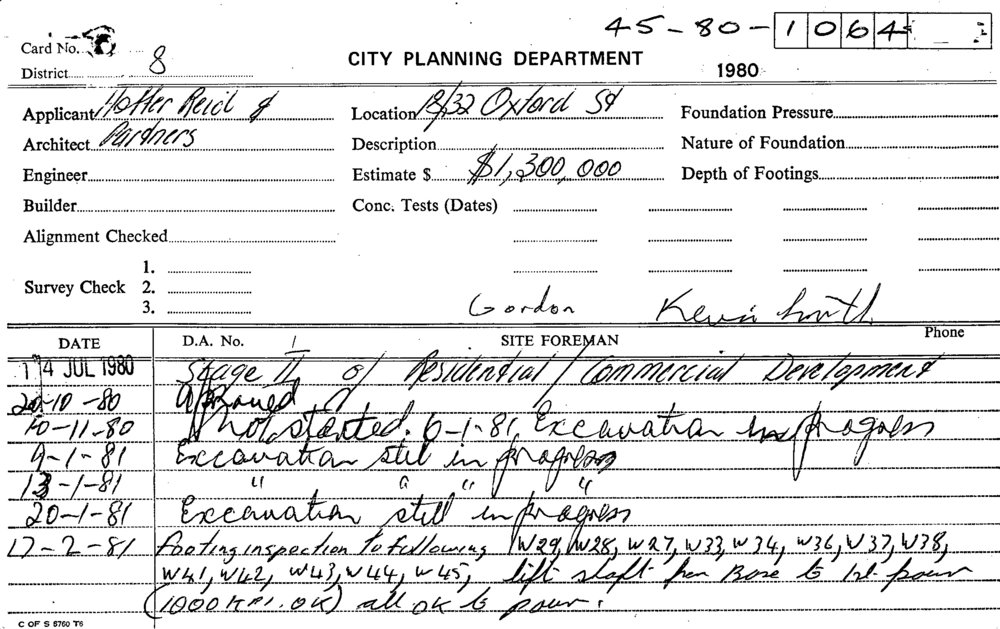 45-80-1064
Card No.
District 8
CITY PLANNING DEPARTMENT
1980
Applicant Hoffer Reid &
Architect Partners
Engineer
Builder
Alignment Checked
Survey Check 1.
2.
3.
Location 12/32 Oxford St
Description
Estimate $ $1,300,000
Conc. Tests (Dates)
Foundation Pressure
Nature of Foundation
Depth of Footings
Gordon Kevin Smith
DATE D.A. No. SITE FOREMAN Phone
14 JUL 1980 Stage II of Residential / Commercial Development
20-10-80 Approved
10-11-80 Not started. 6-1-81 Excavation in progress
9-1-81 Excavation still in progress
13-1-81 " " " "
20-1-81 Excavation still in progress
17-2-81 Footing inspection to following W29, W28, W27, W33, W34, W36, W37, W38,
W41, W42, W43, W44, W45, lift shaft from Base to 1st pour
(1000 KPA. OK) all OK to pour.
C OF S 5760 T6